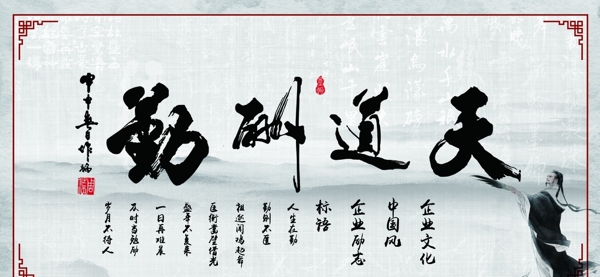 天道酬勤
企业文化
中国风
企业励志
标语
人生在勤
勤则不匮
祖逖闻鸡起舞
匡衡凿壁借光
盛年不重来
一日再难晨
及时当勉励
岁月不待人